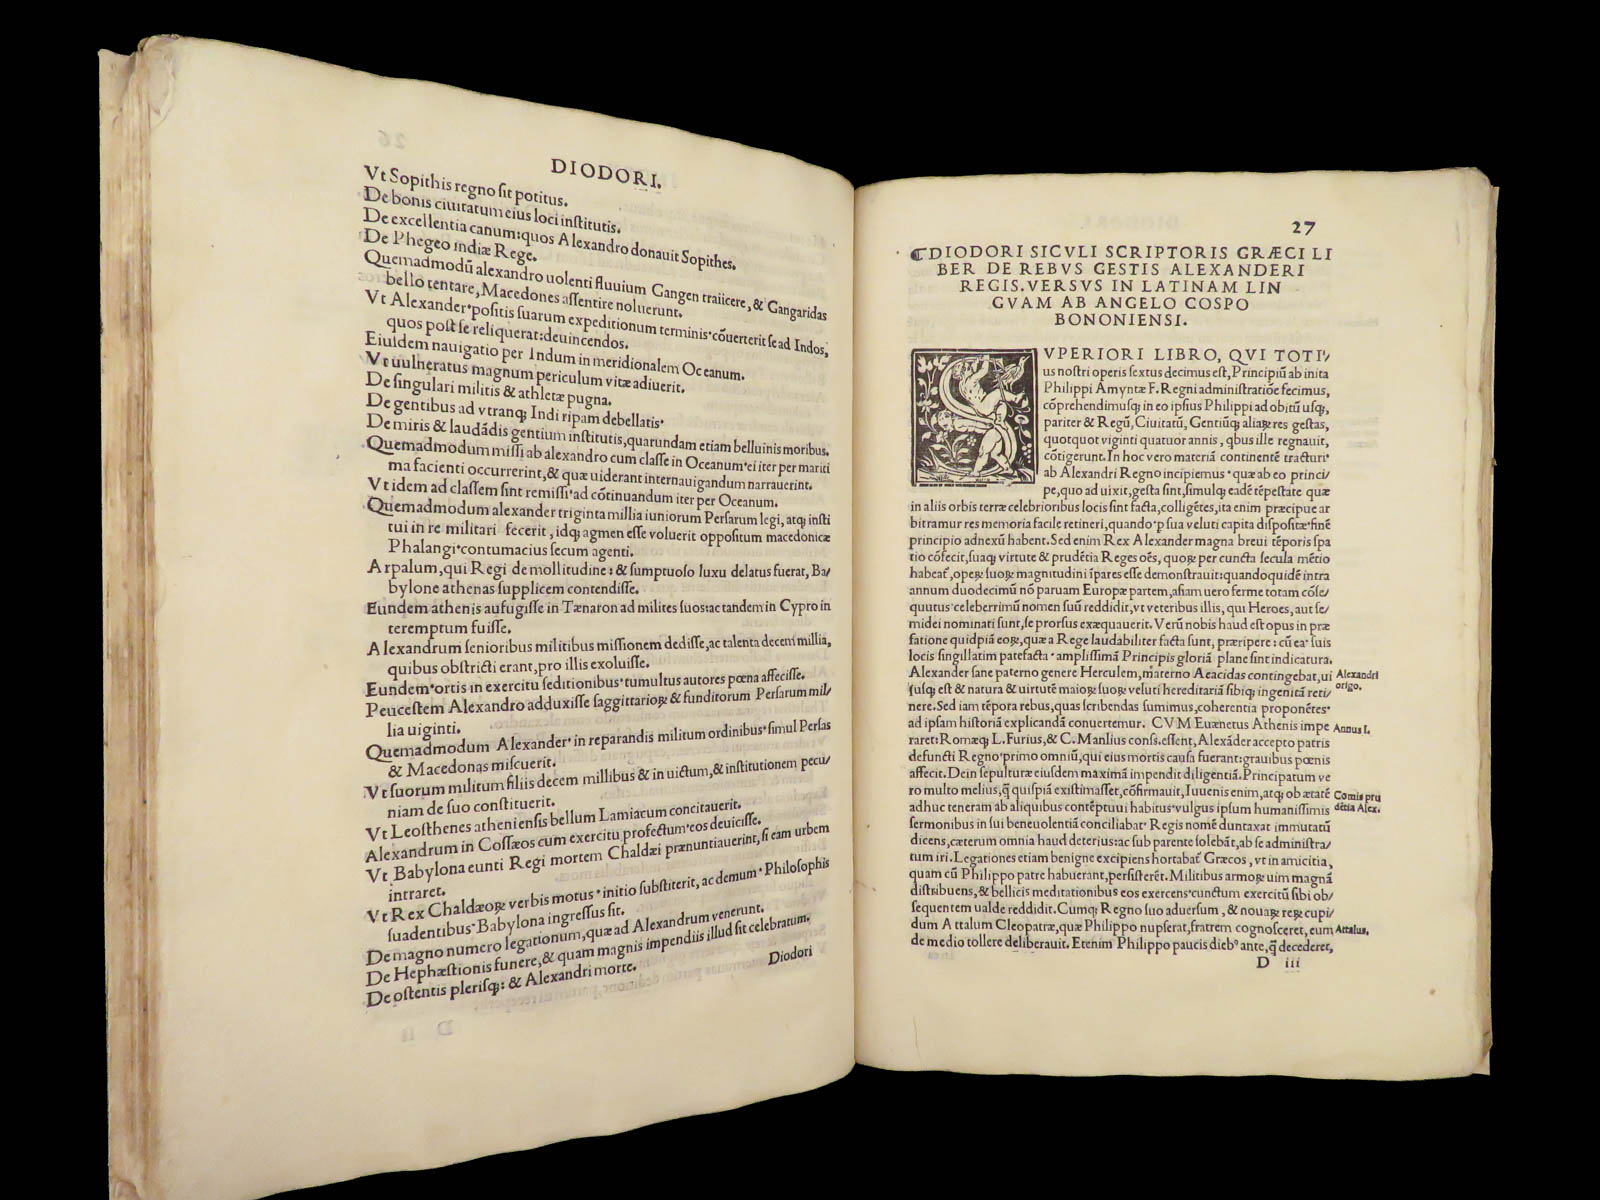 DIODORI.
Vt Sopithis regno ſit potitus.
De bonis ciuitatum eius loci inſtitutis.
De excellentia canum:quos Alexandro donauit Sopithes.
De Phegeo indiæ Rege.
Quemadmodū alexandro uolenti fluuium Gangen traiicere, & Gangaridas
bello tentare, Macedones aſſentire noluerunt.
Vt Alexander·poſitis ſuarum expeditionum terminis·cōuerterit ſe ad Indos,
quos poſt ſe reliquerat:deuincendos.
Eiuſdem nauigatio per Indum in meridionalem Oceanum.
Vt uulneratus magnum periculum vitæ adiuerit.
De ſingulari militis & athletæ pugna.
De gentibus ad vtranqꝫ Indi ripam debellatis·
De miris & laudādis gentium inſtitutis,quarundam etiam belluinis moribus.
Quemadmodum miſſi ab alexandro cum claſſe in Oceanum·ei iter per mariti
ma facienti occurrerint,& quæ uiderant internauigandum narrauerint.
Vt idem ad claſſem ſint remiſſi·ad cōtinuandum iter per Oceanum.
Quemadmodum alexander triginta millia iuniorum Perſarum legi, atqꝫ inſti
tui in re militari fecerit, idqꝫ agmen eſſe voluerit oppoſitum macedonicæ
Phalangi·contumacius ſecum agenti.
Arpalum,qui Regi de mollitudine: & ſumptuoſo luxu delatus fuerat, Ba/
bylone athenas ſupplicem contendiſſe.
Eundem athenis aufugiſſe in Tænaron ad milites ſuos:ac tandem in Cypro in
teremptum fuiſſe.
Alexandrum ſenioribus militibus miſſionem dediſſe,ac talenta decem millia,
quibus obſtricti erant,pro illis exoluiſſe.
Eundem·ortis in exercitu ſeditionibus·tumultus autores pœna affeciſſe.
Peuceſtem Alexandro adduxiſſe ſaggittarioꝝ & funditorum Perſarum mil/
lia uiginti.
Quemadmodum Alexander·in reparandis militum ordinibus·ſimul Perſas
& Macedonas miſcuerit.
Vt ſuorum militum filiis decem millibus & in uictum,& inſtitutionem pecu/
niam de ſuo conſtituerit.
Vt Leoſthenes athenienſis bellum Lamiacum concitauerit.
Alexandrum in Coſſæos cum exercitu profectum·eos deuiciſſe.
Vt Babylona eunti Regi mortem Chaldæi prænuntiauerint, ſi eam urbem
intraret.
Vt Rex Chaldæoꝝ verbis motus·initio ſubſtiterit, ac demum·Philoſophis
ſuadentibus·Babylona ingreſſus ſit.
De magno numero legationum,quæ ad Alexandrum venerunt.
De Hephæſtionis funere,& quam magnis impendiis illud ſit celebratum.
De oſtentis pleriſqꝫ: & Alexandri morte.
Diodori
27
DIODORI SICVLI SCRIPTORIS GRÆCI LI
BER DE REBVS GESTIS ALEXANDERI
REGIS.VERSVS IN LATINAM LIN
GVAM AB ANGELO COSPO
BONONIENSI.
SVPERIORI LIBRO, QVI TOTI/
us noſtri operis ſextus decimus eſt,Principiū ab inita
Philippi Amyntæ F. Regni adminiſtratiōe fecimus,
cōprehendimuſqꝫ in eo ipſius Philippi ad obitū uſqꝫ,
pariter & Regū, Ciuitatū, Gentiūqꝫ aliaꝝ res geſtas,
quotquot viginti quatuor annis, qbus ille regnauit,
cōtigerunt. In hoc vero materiā continentē tracturi·
ab Alexandri Regno incipiemus·quæ ab eo princi/
pe,quo ad uixit,geſta ſint,ſimulqꝫ eadē tēpeſtate quæ
in aliis orbis terræ celebrioribus locis ſint facta,colligētes,ita enim præcipue ar
bitramur res memoria facile retineri,quando·p ſua veluti capita diſpoſitæ·finē
principio adnexū habent. Sed enim Rex Alexander magna breui tēporis ſpa
tio cōfecit,ſuaqꝫ virtute & prudētia Reges oēs, quoꝝ per cuncta ſecula mētio
habeat̄, opeꝝ ſuoꝝ magnitudini īpares eſſe demonſtrauit:quandoquidē intra
annum duodecimū nō paruam Europæ partem,aſiam uero ferme totam cōſe/
quutus·celeberrimū nomen ſuū reddidit,vt veteribus illis, qui Heroes, aut ſe/
midei nominati ſunt,ſe prorſus exæquauerit. Verū nobis haud eſt opus in præ
fatione quidpiā eoꝝ,quæ a Rege laudabiliter facta ſunt, præripere: cū ea·ſuis
locis ſingillatim patefacta·ampliſſimā Principis gloriā plane ſint indicatura.
Alexander ſane paterno genere Herculem,materno Aeacidas contingebat,ui
Alexandri
origo.
ſuſqꝫ eſt & natura & uirtute maioꝝ ſuoꝝ veluti hereditariā ſibiqꝫ ingenitā reti/
nere. Sed iam tēpora rebus,quas ſcribendas ſumimus,coherentia proponētes·
ad ipſam hiſtoriā explicandā conuertemur. CVM Euænetus Athenis impe
Annus I.
raret: Romæqꝫ L. Furius,& C. Manlius conſs.eſſent, Alexāder accepto patris
defuncti Regno·primo omniū,qui eius mortis cauſa fuerant:grauibus pœnis
affecit. Dein ſepulturæ eiuſdem maximā impendit diligentiā.Principatum ve
ro multo melius,q̄ quiſpiā exiſtimaſſet,cōfirmauit.Iuuenis enim,atqꝫ ob ætatē
Comis pru
dētia Alex.
adhuc teneram ab aliquibus contēptui habitus·vulgus ipſum humaniſſimis
ſermonibus in ſui beneuolentiā conciliabat·Regis nomē duntaxat immutatū
dicens,cæterum omnia haud deterius:ac ſub parente ſolebāt,ab ſe adminiſtra/
tum iri. Legationes etiam benigne excipiens hortabat̄ Græcos, vt in amicitia,
quam cū Philippo patre habuerant,perſiſterēt.Militibus armoꝝ uim magnā
diſtribuens,& bellicis meditationibus eos exercens·cunctum exercitū ſibi ob/
ſequentem ualde reddidit. Cumqꝫ Regno ſuo aduerſum, & nouaꝝ reꝝ cupi/
dum Attalum Cleopatræ,quæ Philippo nupſerat,fratrem cognoſceret, eum
Attalus.
de medio tollere deliberauit. Etenim Philippo paucis dieb⁹ ante,q̄ decederet,
D iii